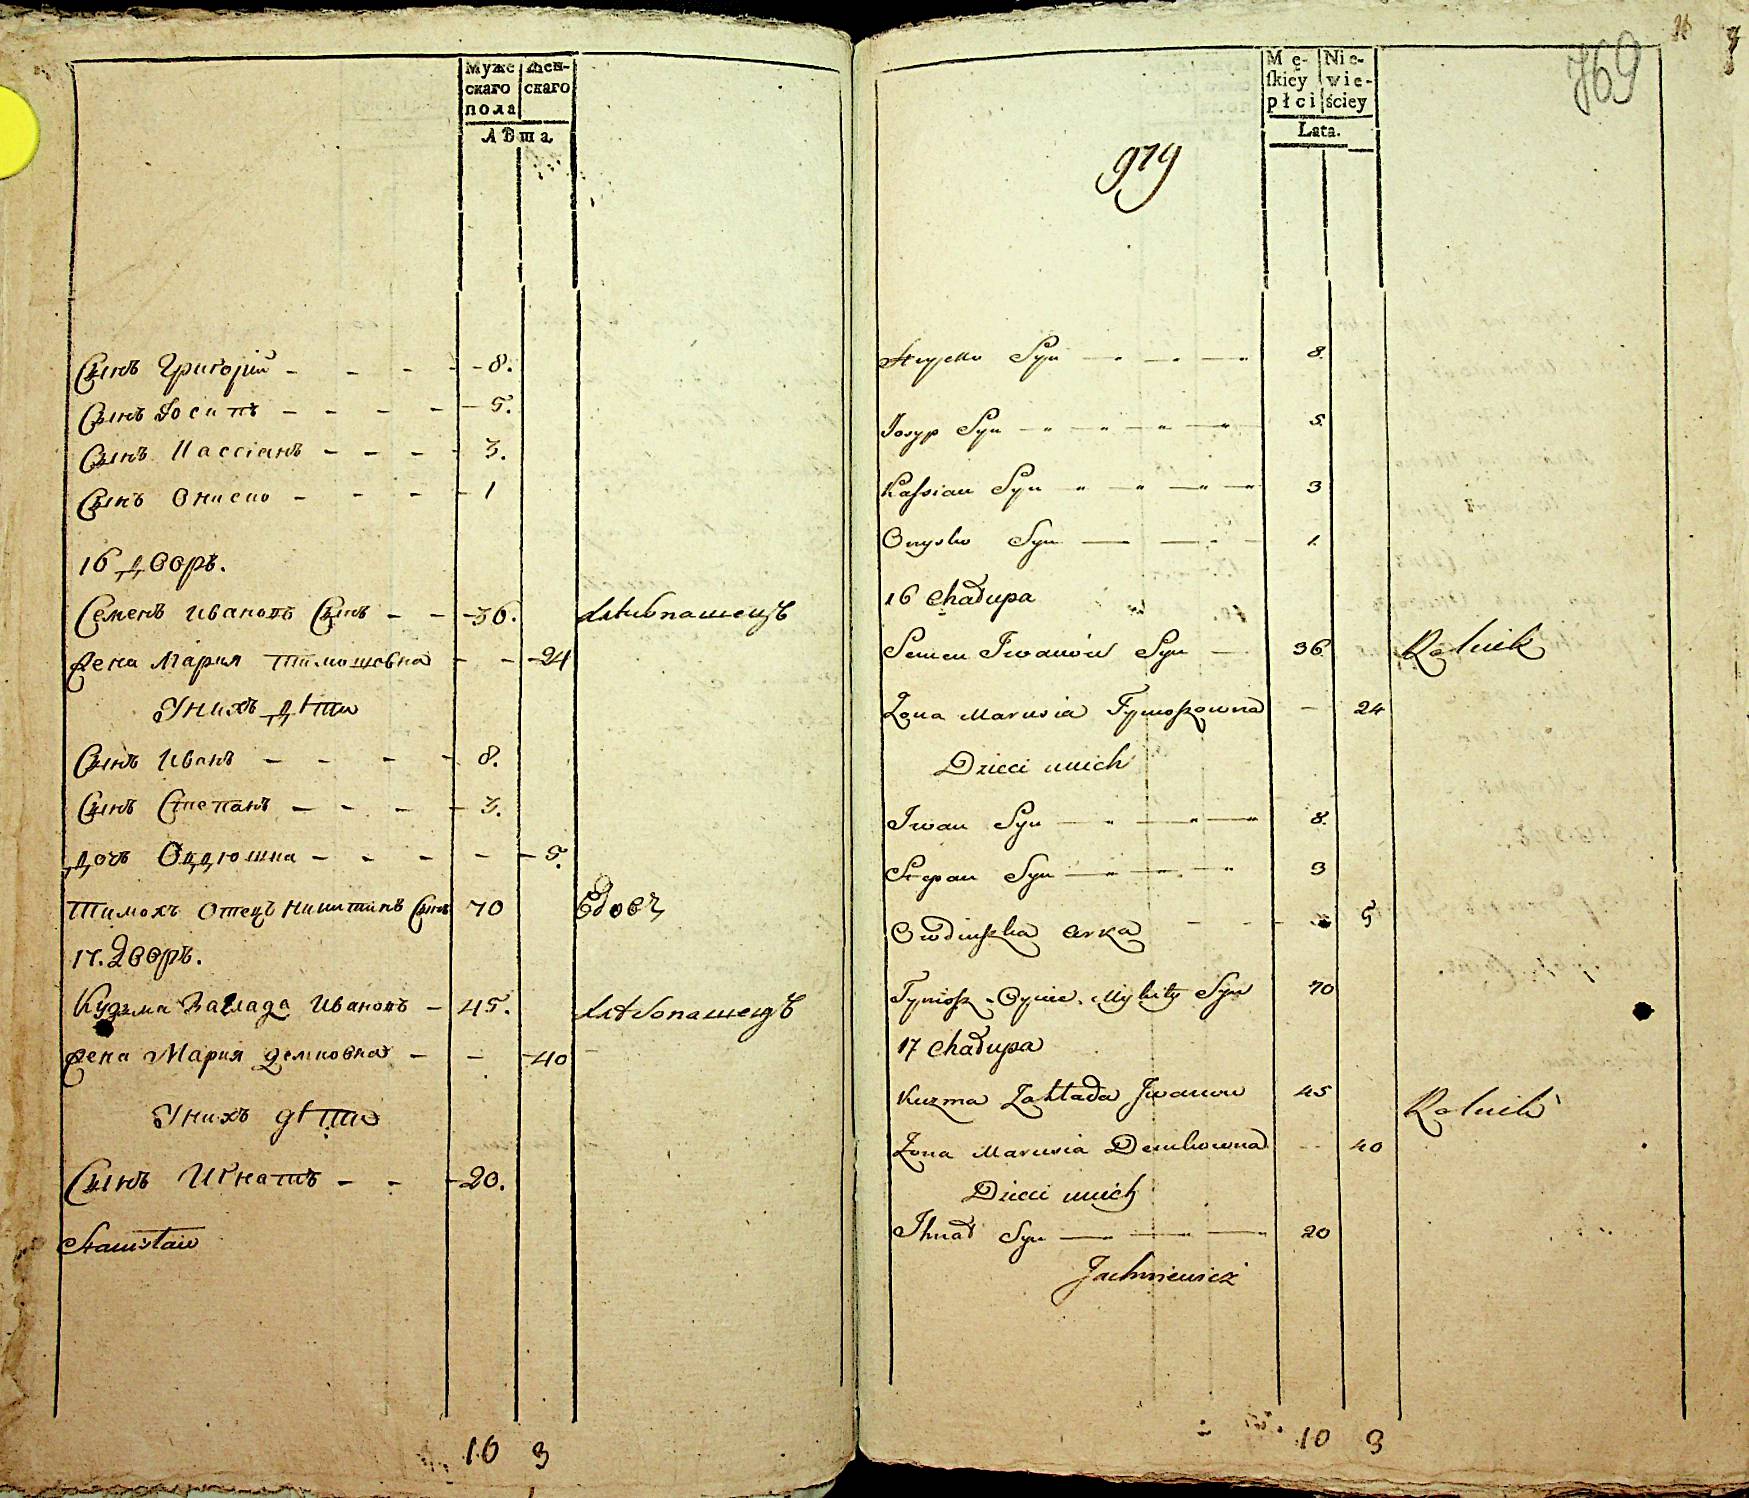 Муже Жен-
скаго скаго
пола
Лѣта.
Сынъ Григорій - - - - 8.
Сынъ Іосипъ - - - - 5.
Сынъ Кассіанъ - - - - 3.
Сынъ Ониско - - - - 1
16 дворъ.
Семенъ Ивановъ Сынъ - - 36. хлѣбопашецъ
Жена Мария Тимошовна - - 24
У нихъ дѣти
Сынъ Иванъ - - - - 8.
Сынъ Степанъ - - - - 3.
дочъ Овдюшка - - - - - 5.
Тимохъ Отецъ Никитинъ Сынъ 70 Вдовъ
17. Дворъ.
Кузма Заклада Ивановъ - 45. хлѣбопашецъ
Жена Мария Демковна - - 40
У нихъ дѣти
Сынъ Игнатъ - - - 20.
Stanisław
10 3
76
769
Mę- Nie-
skiey wie-
płci ściey
Lata.
979
Hryćko Syn 8.
Josyp Syn 5.
Kassian Syn 3
Onysko Syn 1.
16 Chałupa
Semen Iwanów Syn 36 Rolnik
Żona Marusia Tymoszowna 24
Dzieci u nich
Iwan Syn 8.
Stepan Syn 3
Owdiuszka Curka 5
Tymosz Oyciec Mykity Syn 70
17 Chałupa
Kuzma Zakłada Iwanow 45 Rolnik
Żona Marusia Demkowna 40
Dzieci u nich
Ihnat Syn 20
Jachniewicz
10 3